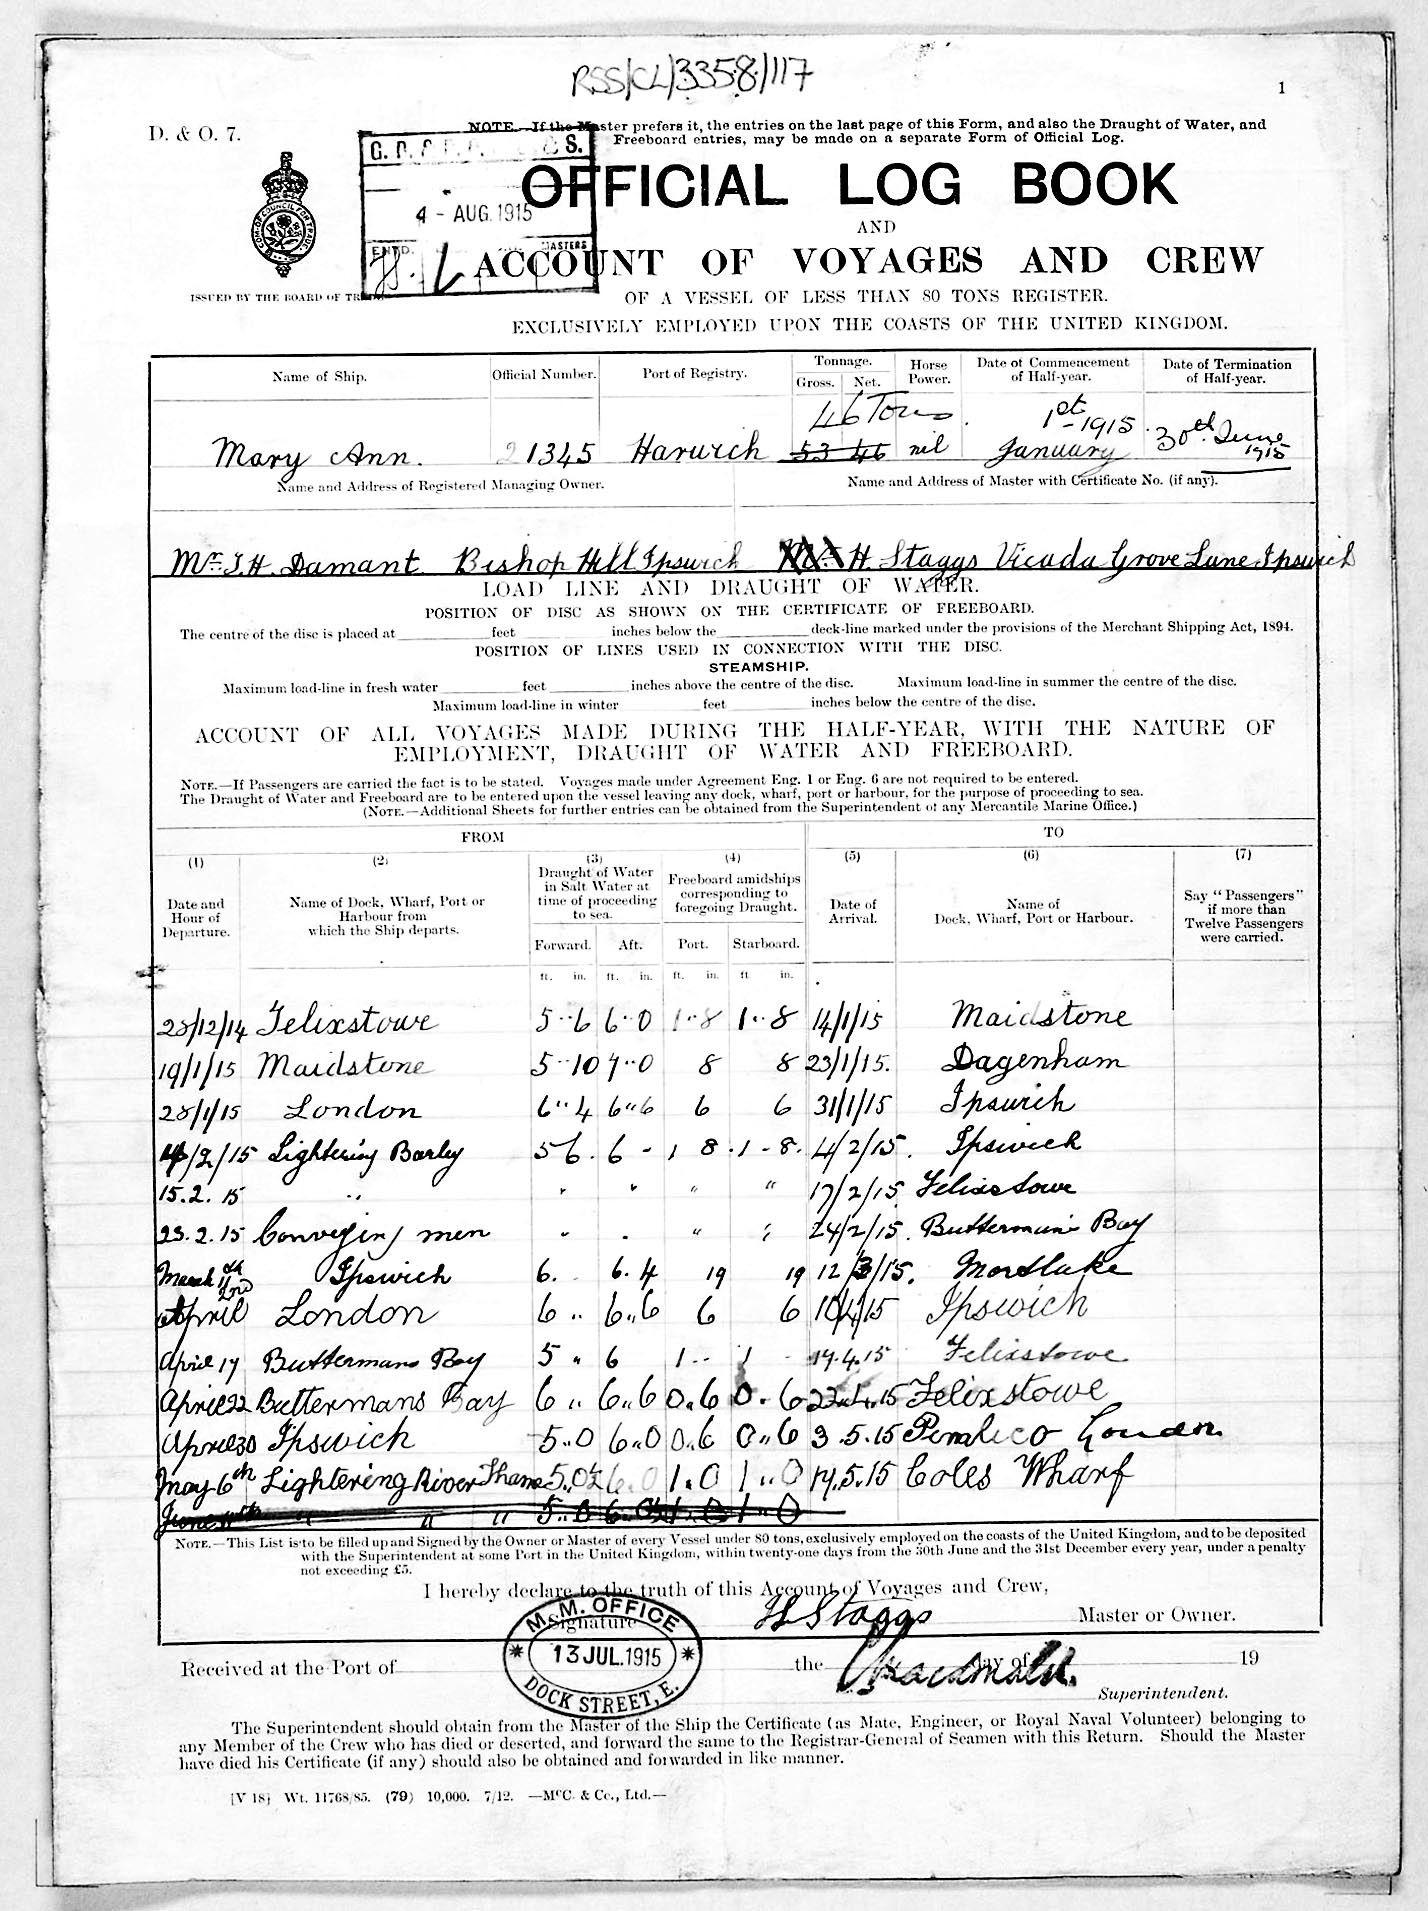 RSS/CL/3358/117
1
D. & O. 7.
NOTE.—If the Master prefers it, the entries on the last page of this Form, and also the Draught of Water, and
Freeboard entries, may be made on a separate Form of Official Log.
OFFICIAL LOG BOOK
4 - AUG. 1915
AND
ENTD. MASTERS
ACCOUNT OF VOYAGES AND CREW
ISSUED BY THE BOARD OF TRADE
OF A VESSEL OF LESS THAN 80 TONS REGISTER.
EXCLUSIVELY EMPLOYED UPON THE COASTS OF THE UNITED KINGDOM.
Name of Ship. Official Number. Port of Registry. Tonnage. Gross. Net. Horse Power. Date of Commencement of Half-year. Date of Termination of Half-year.
46 Tons 1st
Mary Ann. 21345 Harwich 53 46 nil January -1915 30th June 1915
Name and Address of Registered Managing Owner. Name and Address of Master with Certificate No. (if any).
Mr. T. H. Damant Bishop Hill Ipswich H Staggs Vicada Grove Lane Ipswich
LOAD LINE AND DRAUGHT OF WATER.
POSITION OF DISC AS SHOWN ON THE CERTIFICATE OF FREEBOARD.
The centre of the disc is placed at feet inches below the deck-line marked under the provisions of the Merchant Shipping Act, 1894.
POSITION OF LINES USED IN CONNECTION WITH THE DISC.
STEAMSHIP.
Maximum load-line in fresh water feet inches above the centre of the disc. Maximum load-line in summer the centre of the disc.
Maximum load-line in winter feet inches below the centre of the disc.
ACCOUNT OF ALL VOYAGES MADE DURING THE HALF-YEAR, WITH THE NATURE OF
EMPLOYMENT, DRAUGHT OF WATER AND FREEBOARD.
NOTE.—If Passengers are carried the fact is to be stated. Voyages made under Agreement Eng. 1 or Eng. 6 are not required to be entered.
The Draught of Water and Freeboard are to be entered upon the vessel leaving any dock, wharf, port or harbour, for the purpose of proceeding to sea.
(NOTE.—Additional Sheets for further entries can be obtained from the Superintendent of any Mercantile Marine Office.)
FROM TO
(1) (2) (3) (4) (5) (6) (7)
Date and Hour of Departure. Name of Dock, Wharf, Port or Harbour from which the Ship departs. Draught of Water in Salt Water at time of proceeding to sea. Freeboard amidships corresponding to foregoing Draught. Date of Arrival. Name of Dock, Wharf, Port or Harbour. Say "Passengers" if more than Twelve Passengers were carried.
Forward. Aft. Port. Starboard.
ft. in. ft. in. ft. in. ft. in.
28/12/14 Felixstowe 5"6 6"0 1"8 1"8 14/1/15 Maidstone
19/1/15 Maidstone 5"10 7"0 8 8 23/1/15. Dagenham
28/1/15 London 6"4 6"6 6 6 31/1/15 Ipswich
/2/15 Lightering Barley 5 6. 6 - 1 8. 1 - 8. 4/2/15. Ipswich
15.2.15 " " " " " 17/2/15. Felixstowe
23.2.15 Conveying men " " " " 24/2/15. Buttermans Bay
March 11th Ipswich 6. 6.4 19 19 12/3/15. Mortlake
April 2nd London 6 " 6"6 6 6 10/4/15 Ipswich
April 17 Buttermans Bay 5 " 6 1 " 1 19.4.15 Felixstowe
April 22 Buttermans Bay 6 " 6"6 0.6 0.6 22.4.15 Felixstowe
April 30 Ipswich 5"0 6"0 0"6 0"6 3.5.15 Pimlico London
May 6th Lightering River Thames 5"0½ 6.0 1.0 1"0 14.5.15 Coles Wharf
June " " " 5"0 1"0
NOTE.—This List is to be filled up and Signed by the Owner or Master of every Vessel under 80 tons, exclusively employed on the coasts of the United Kingdom, and to be deposited
with the Superintendent at some Port in the United Kingdom, within twenty-one days from the 30th June and the 31st December every year, under a penalty
not exceeding £5.
I hereby declare to the truth of this Account of Voyages and Crew,
Signature H Staggs Master or Owner.
M. M. OFFICE
13 JUL. 1915
DOCK STREET, E.
Received at the Port of the day of 19
Superintendent.
The Superintendent should obtain from the Master of the Ship the Certificate (as Mate, Engineer, or Royal Naval Volunteer) belonging to
any Member of the Crew who has died or deserted, and forward the same to the Registrar-General of Seamen with this Return. Should the Master
have died his Certificate (if any) should also be obtained and forwarded in like manner.
[V 18] Wt. 11768/85. (79) 10,000. 7/12. —McC. & Co., Ltd.—